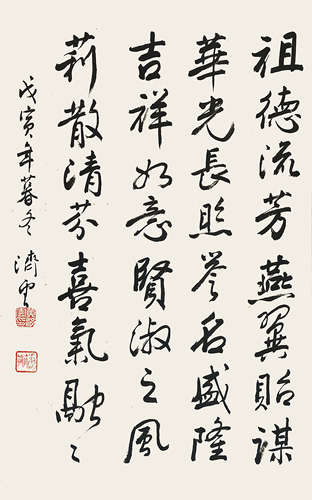 祖德流芳燕翼貽謀
華光長照譽名盛隆
吉祥如意賢淑之風
莉散清芬喜氣融々
戊寅年暮冬 濟雲